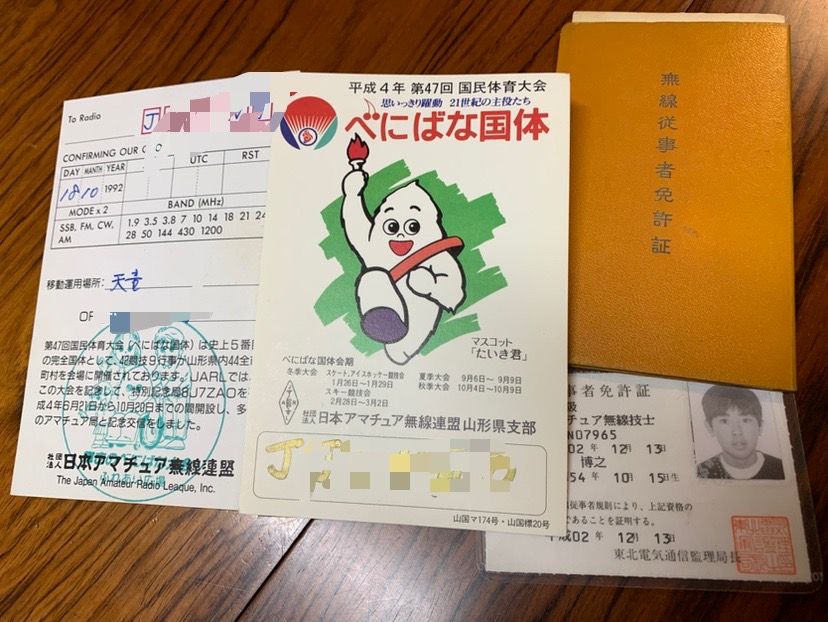 To Radio
J
CONFIRMING OUR
DAY MONTH YEAR
UTC
RST
18 10 1992
MODE x 2
BAND (MHz)
SSB, FM, CW,
AM
1.9 3.5 3.8 7 10 14 18 21 24
28 50 144 430 1200
移動運用場所: 天童
OP
第47回国民体育大会(べにばな国体)は史上5番目
の完全国体として、42競技9行事が山形県内44全市
町村を会場に開催されております。JARLでは、
この大会を記念して、特別記念局8J7ZAOを
成4年6月21日から10月29日までの間開設し、多
のアマチュア局と記念交信をしました。
社団法人 日本アマチュア無線連盟
The Japan Amateur Radio League, Inc.
ふれあい広場
平成4年 第47回 国民体育大会
思いっきり躍動 21世紀の主役たち
べにばな国体
マスコット
「たいき君」
べにばな国体会期
冬季大会 スケート、アイスホッケー競技会
1月26日〜1月29日
スキー競技会
2月28日〜3月2日
夏季大会 9月6日〜 9月9日
秋季大会 10月4日〜10月9日
社団法人 日本アマチュア無線連盟山形県支部
J
山国マ174号・山国標20号
無線従事者免許証
事者免許証
級
チュア無線技士
N07965
02 年 12 月 13
博之
54 年 10 月 15 日生
従事者規則により、上記資格の
であることを証明する。
平成02 年 12 月 13
東北電気通信監理局長